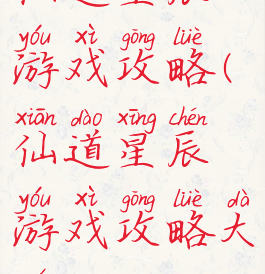 yóu xì gōng lüè
游戏攻略(
xiān dào xīng chén
仙道星辰
yóu xì gōng lüè dà
游戏攻略大